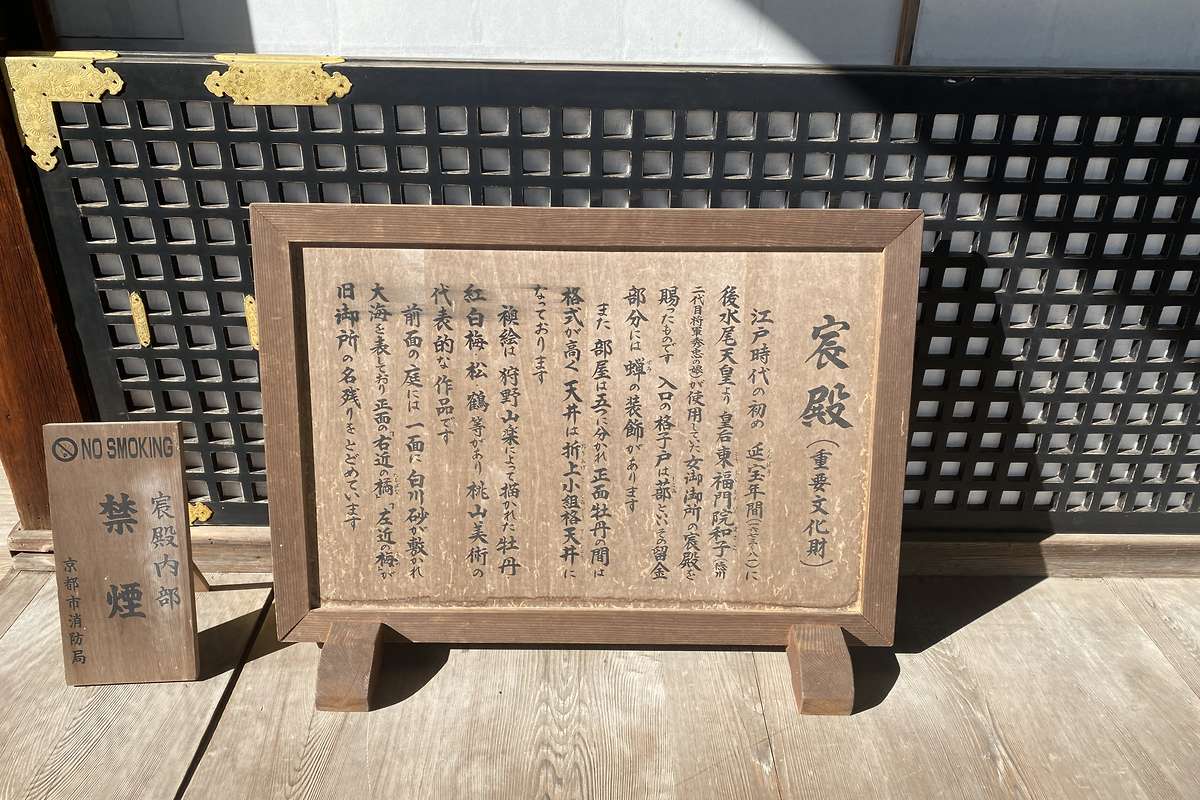 宸殿(重要文化財)
江戸時代の初め 延宝年間(一六七三~八一)に
後水尾天皇より 皇后・東福門院和子(徳川
二代目将軍秀忠の娘)が使用していた女御御所の宸殿を
賜ったものです 入口の格子戸は蔀といいその留金
部分には 蝉の装飾があります
また 部屋は五つに分かれ正面牡丹の間は
格式が高く 天井は折上小組格天井に
なっております
襖絵は 狩野山楽によって描かれた牡丹
紅白梅 松 鶴 等があり 桃山美術の
代表的な作品です
前面の庭には 一面に 白川砂が敷かれ
大海を表しており 正面の「右近の橘」「左近の梅」が
旧御所の名残りをとどめています
NO SMOKING
宸殿内部
禁煙
京都市消防局